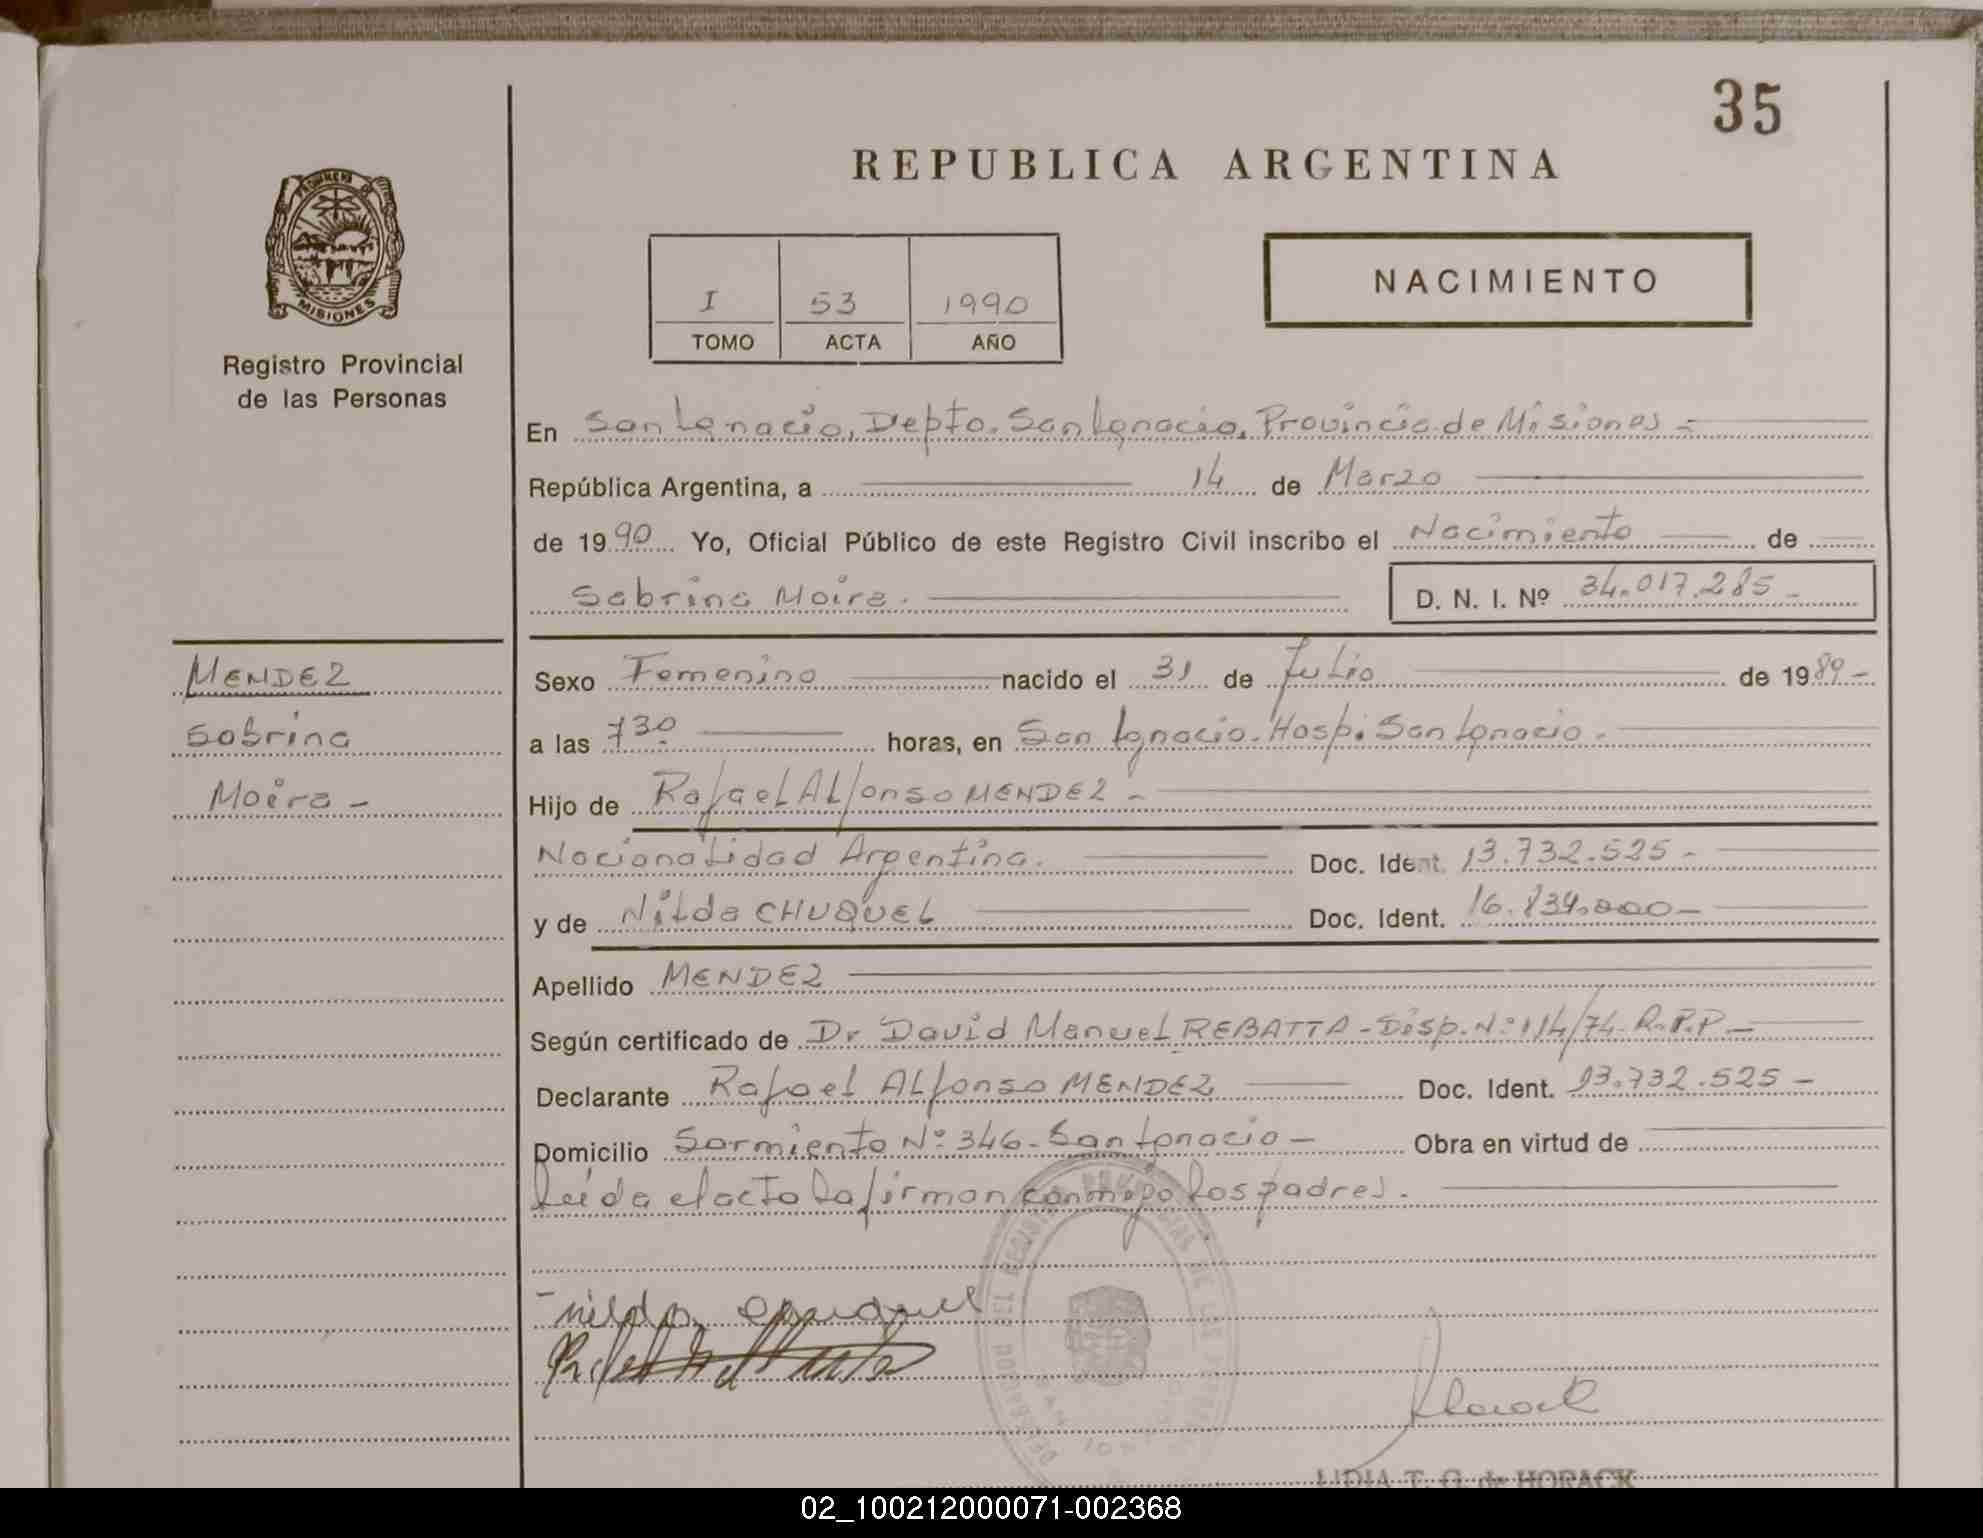 35
REPUBLICA ARGENTINA
PROVINCIA DE
MISIONES
Registro Provincial
de las Personas
I 53 1990
TOMO ACTA AÑO
NACIMIENTO
En San Ignacio, Depto. San Ignacio, Provincia de Misiones -
República Argentina, a 14 de Marzo
de 1990 Yo, Oficial Público de este Registro Civil inscribo el Nacimiento de
Sabrina Moira. D. N. I. Nº 34.017.285 -
MENDEZ
Sabrina
Moira -
Sexo Femenino nacido el 31 de Julio de 1989 -
a las 7 30 horas, en San Ignacio. Hosp. San Ignacio.
Hijo de Rafael Alfonso MENDEZ -
Nacionalidad Argentina. Doc. Ident. 13.732.525 -
y de Nilda CHUQUEL Doc. Ident. 16.834.000 -
Apellido MENDEZ
Según certificado de Dr David Manuel REBATTA - Disp. Nº 114/74 R.P.P -
Declarante Rafael Alfonso MENDEZ Doc. Ident. 13.732.525 -
Domicilio Sarmiento Nº 346 - San Ignacio - Obra en virtud de
Leída el acta la firman conmigo los padres.
Nilda Chuquel
Horack
LIDIA T. G. de HORACK
02_100212000071-002368